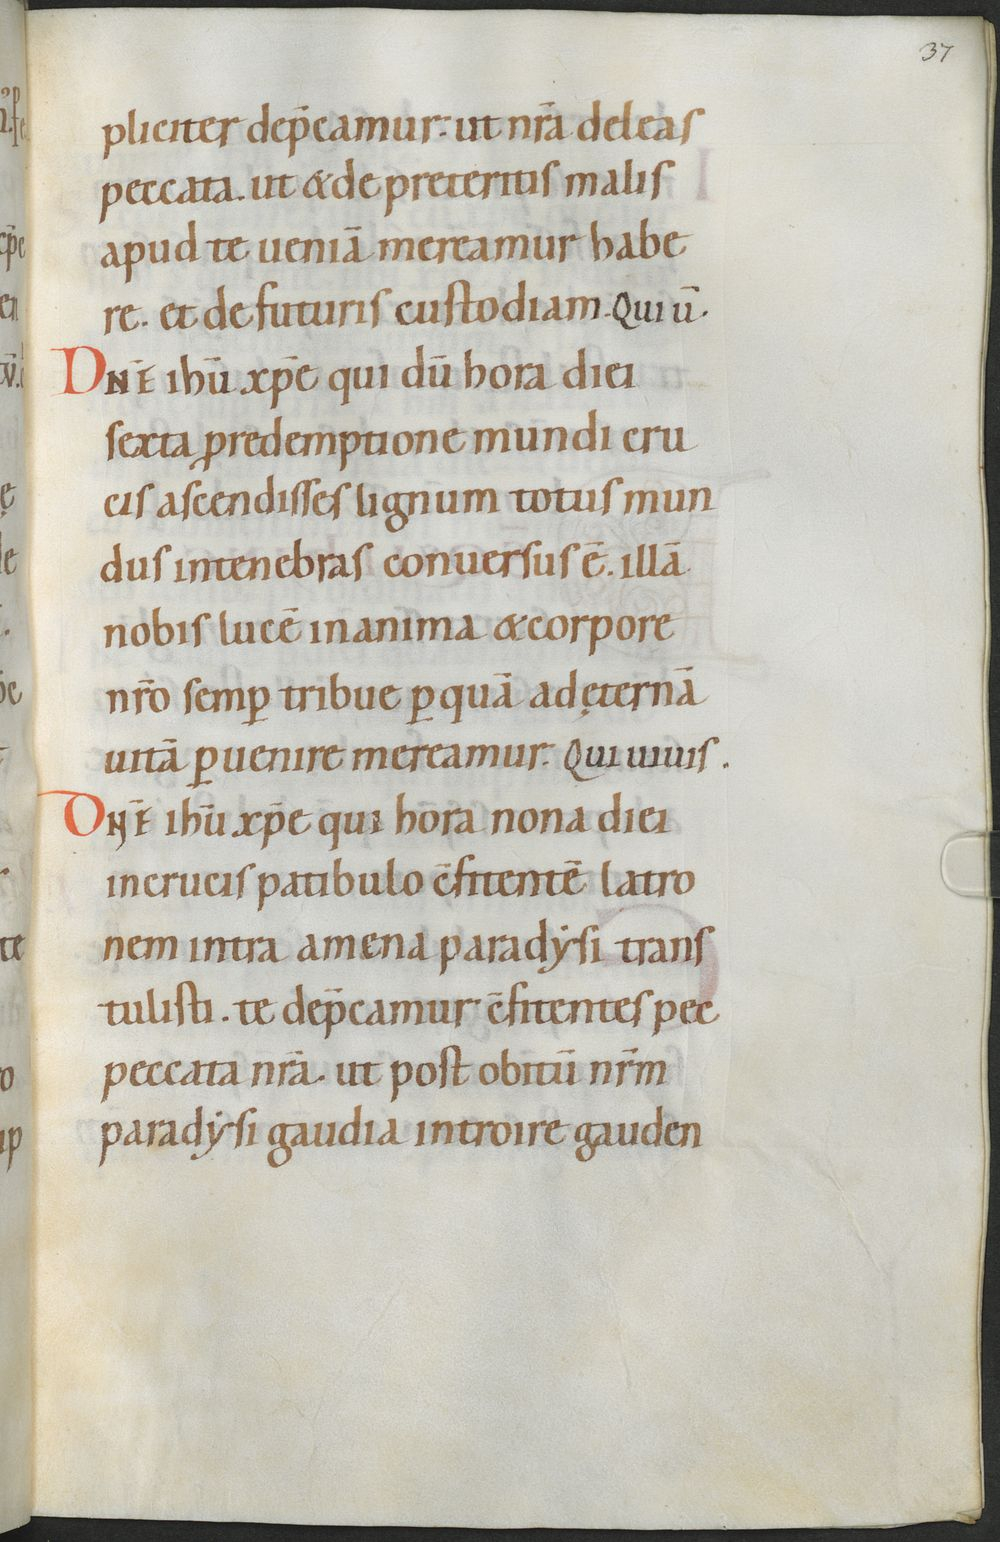 37
pliciter dep̄camur: ut nr̄a deleas
peccata. ut & de preteritis malis
apud te ueniā mereamur habe
re. et de futuris custodiam. Qui ū.
DNĒ ihū xp̄e qui dū hora diei
sexta ꝓ redemptione mundi cru
cis ascendisses lignum totus mun
dus in tenebras conuersus ē. illā
nobis lucē in anima & corpore
nr̄o semꝑ tribue ꝑ quā ad ęternā
uitā ꝑuenire mereamur. Qui uiuis.
DNĒ ihū xp̄e qui hora nona diei
in crucis patibulo c̄fitentē latro
nem intra amena paradẏsi trans
tulisti. te dep̄camur c̄fitentes pec
peccata nr̄a. ut post obitū nr̄m
paradẏsi gaudia introire gauden